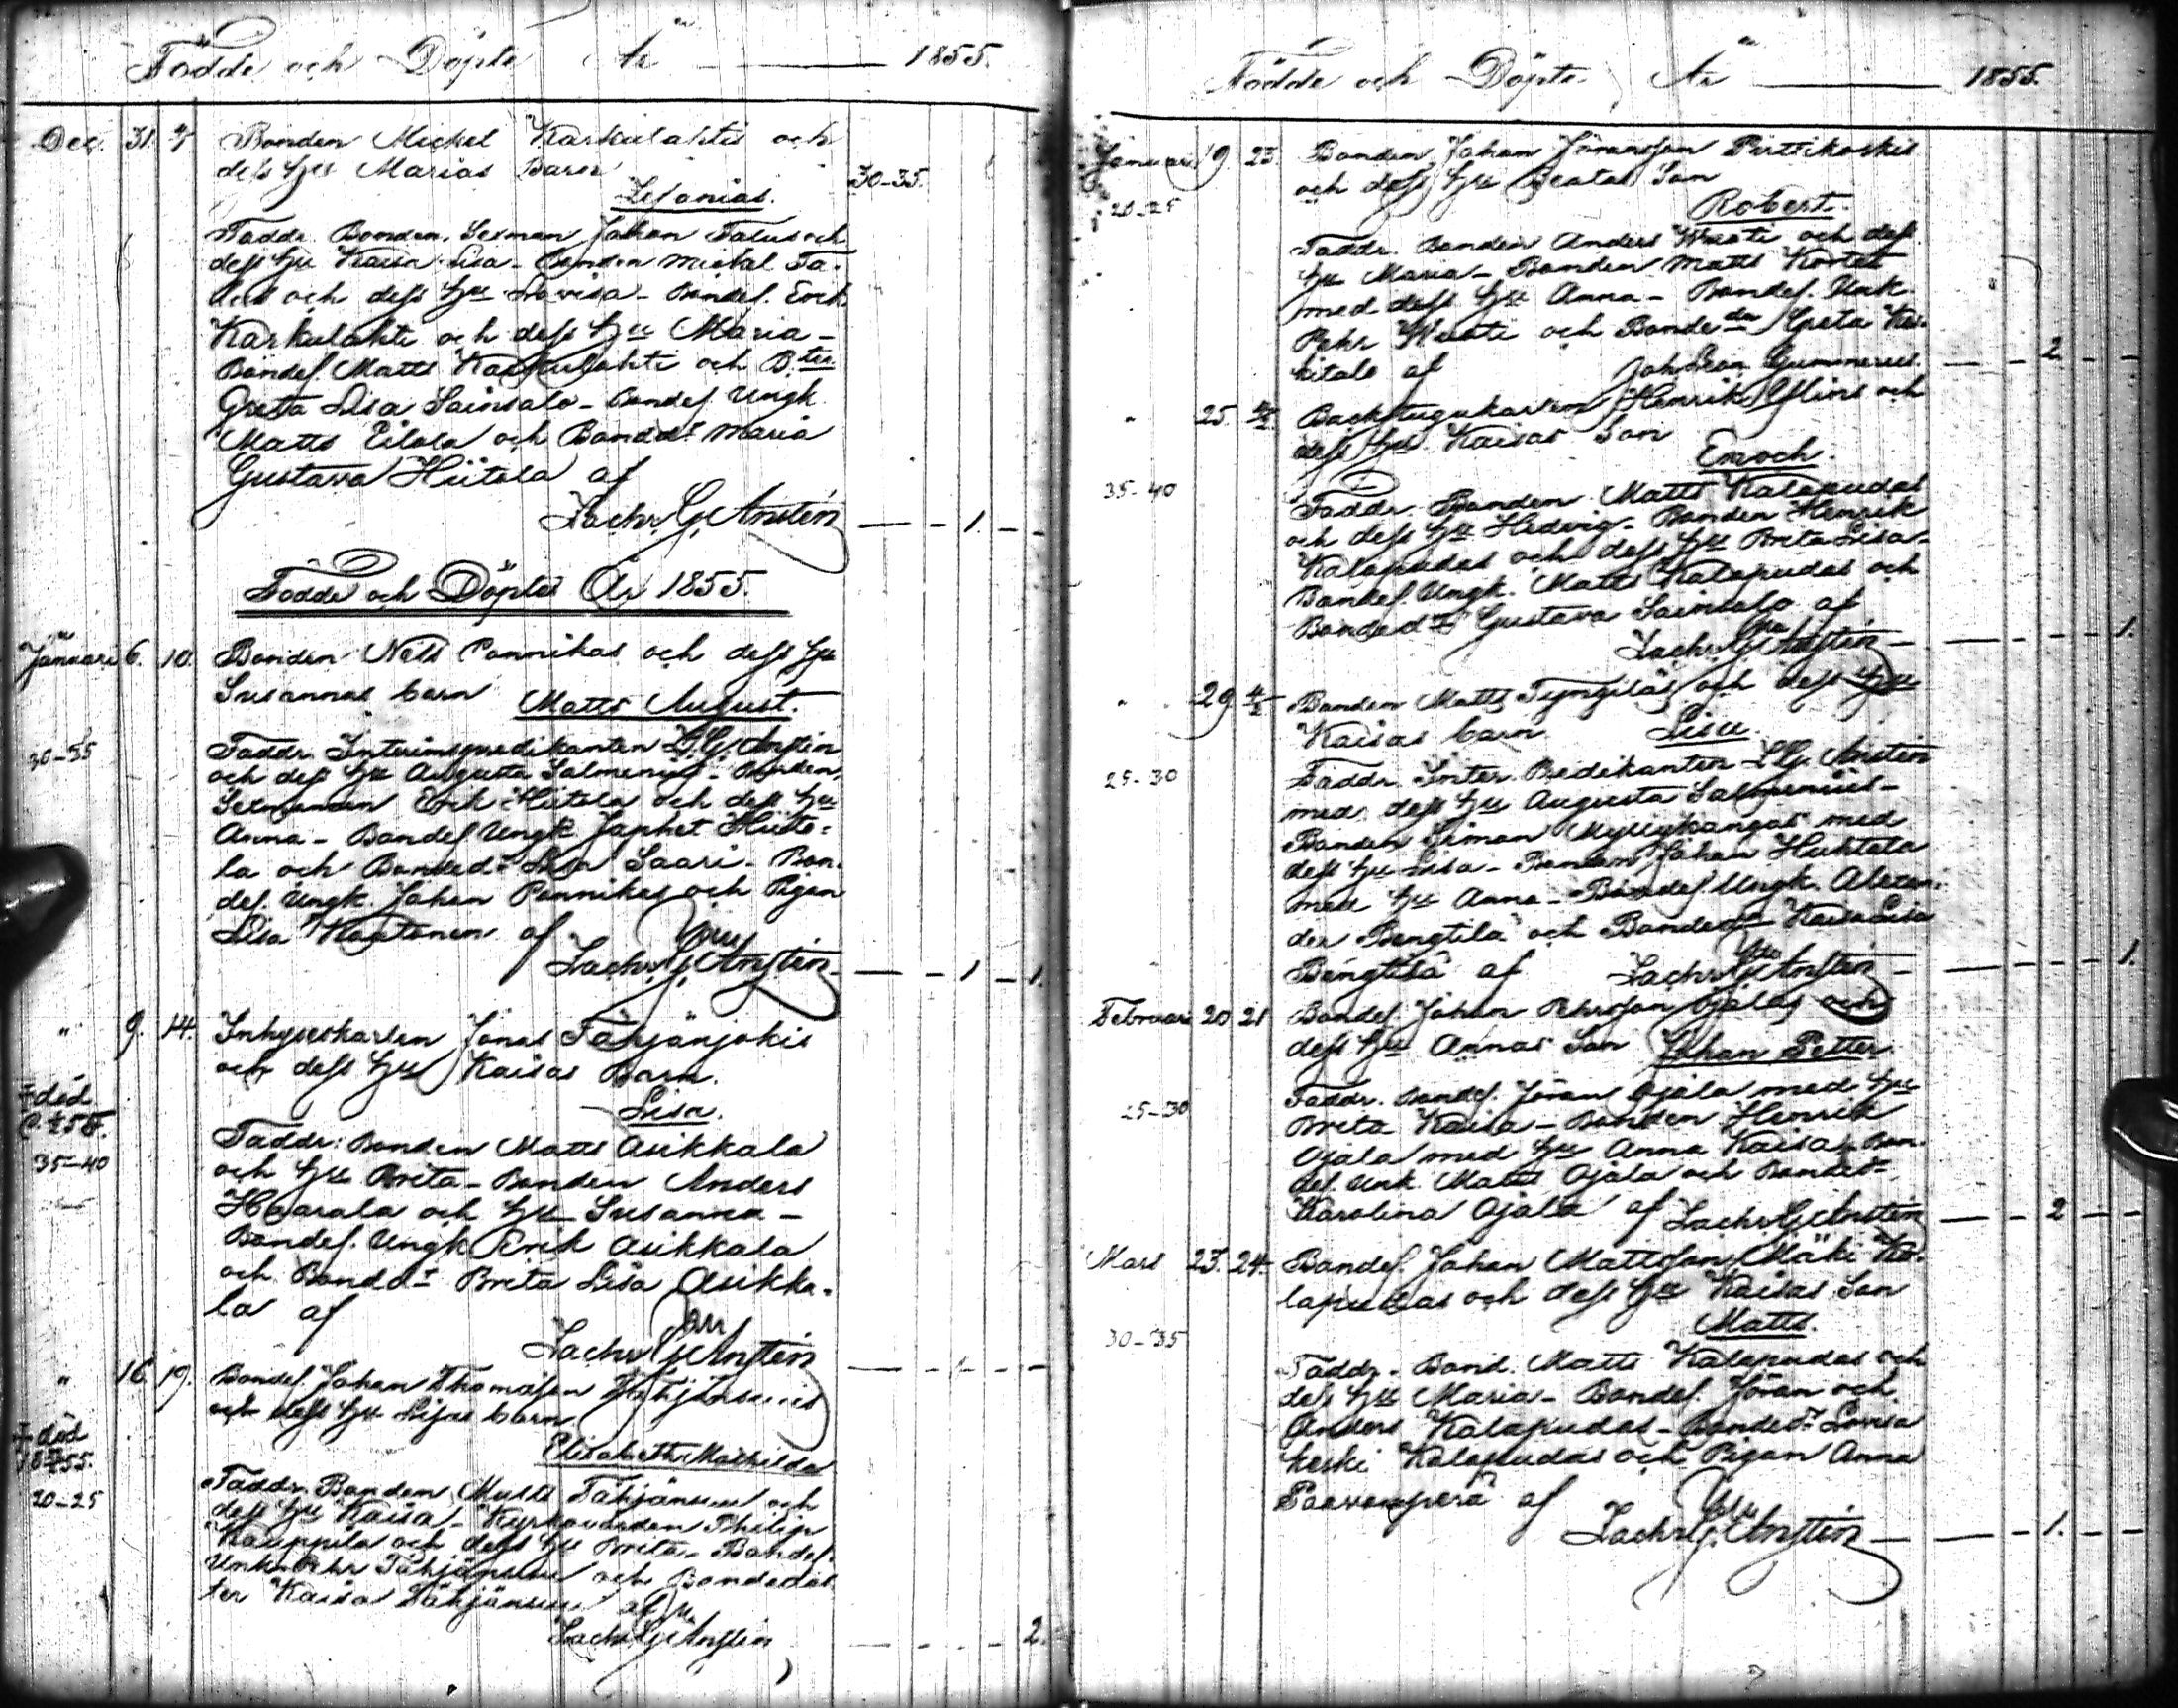 Födde och Döpte År 1855.
Dec. 31. Bonden Mickel Karkulahtis och
dess hu Marias Barn
30-35.
Zefanias.
Faddr. Bonden, Sexman Johan Talus och
dess hu Kaisa Lisa - Bonden Mickel Ta-
lus och dess hu Lovisa - Bondes. Erik
Karkulahti och dess hu Maria -
Bondes. Matts Karkulahti och B.ter
Greta Lisa Sainsalo - Bondes Ungk.
Matts Eilola och Bondedr Maria
Gustava Hiitola af
Zachr. G. Anstén 1.
Födde och Döpte År 1855.
Januari 6. 10. Bonden Nils Pannikas och dess hu
Susannas barn Matts August.
30-35
Faddr. Interimspredikanten Z. G. Anstén
och dess hu Augusta Salmenius - Bonden,
Sexmannen Erik Hiitola och dess hu
Anna - Bondes Ungk. Japhet Hiito-
la och Bonded. Lisa Saari - Bon-
des. Ungk. Johan Pannikas och Pigan
Lisa Kaartonen af
Zachr. G. Anstén 1 1.
" 9. 14. Inhyseskarlen Jonas Tähjänjokis
och dess hu Kaisas Barn.
Lisa.
död
35-40
Faddr: Bonden Matts Asikkala
och hu Brita - Bonden Anders
Haarala och hu Susanna -
Bondes. Ungk Erik Asikkala
och Bondedr Brita Lisa Asikka-
la af
Zachr. G. Anstén 1
" 16. 19. Bondes. Johan Thomasson
och dess hu Lisas barn
Elisabetha Mathilda
död
20-25
Faddr. Bonden Matts Tähjänsuu och
dess hu Kaisa - Kyrkovärden Philip
Kauppila och dess hu Brita - Bondes.
Unk. Pehr Tähjänsuu och Bondedot-
ter Kaisa Tähjänsuu af
Zachr. G. Anstén 2.
Födde och Döpte År 1855.
Januari 19. 23. Bonden Johan Jöransson Pirttikoskis
och dess hu Beatas Son
20-25
Robert.
Faddr. Bonden Anders och dess
hu Maria - Bonden Matts Kortet
med dess hu Anna - Bondes. Unk.
Pehr och Bondedr Greta Kes-
kitalo af Joh Leon Gummerus. 2
" 25. Backstugukarlen Henrik och
dess hu Kaisas Son
Enoch.
35-40
Faddr. Bonden Matts Kalapudas
och dess hu Hedvig - Bonden Henrik
Kalapudas och dess hu Brita Lisa -
Bondes. Ungk. Matts Kalapudas och
Bondedr Gustava Sainsalo af
Zachr. G. Anstén 1.
" 29. 4/2 Bonden Matts Fyngiläs och dess hu
Kaisas barn Lisa.
25-30
Faddr. Inter. Predikanten Z G. Anstén
med dess hu Augusta Salmenius -
Bonden Simon Myllykangas med
dess hu Lisa - Bonden Johan Huhtala
med hu Anna - Bondes Ungk. Alexan-
der Bengtilä och Bondedr Kaisa Lisa
Bengtilä af Zachr. G. Anstén 1.
Februari 20 21 Bondes. Johan Pehrsson Ojalas och
dess hu Annas Son Johan Petter.
25-30
Faddr. Bondes. Jöran Ojala med hu
Brita Kaisa - Bonden Henrik
Ojala med hu Anna Kaisa - Bon-
des. Unk. Matts Ojala och Bondedr
Karolina Ojala af Zachr. G. Anstén 2
Mars 23. 24. Bondes. Johan Mattsson Mäki Ka-
lapudas och dess hu Kaisas Son
Matts.
30-35
Faddr. Bond. Matts Kalapudas och
dess hu Maria - Bondes. Jöran och
Anders Kalapudas - Bondedr Lovisa
Keski Kalapudas och Pigan Anna
Paavonperä af
Zachr. G. Anstén 1.